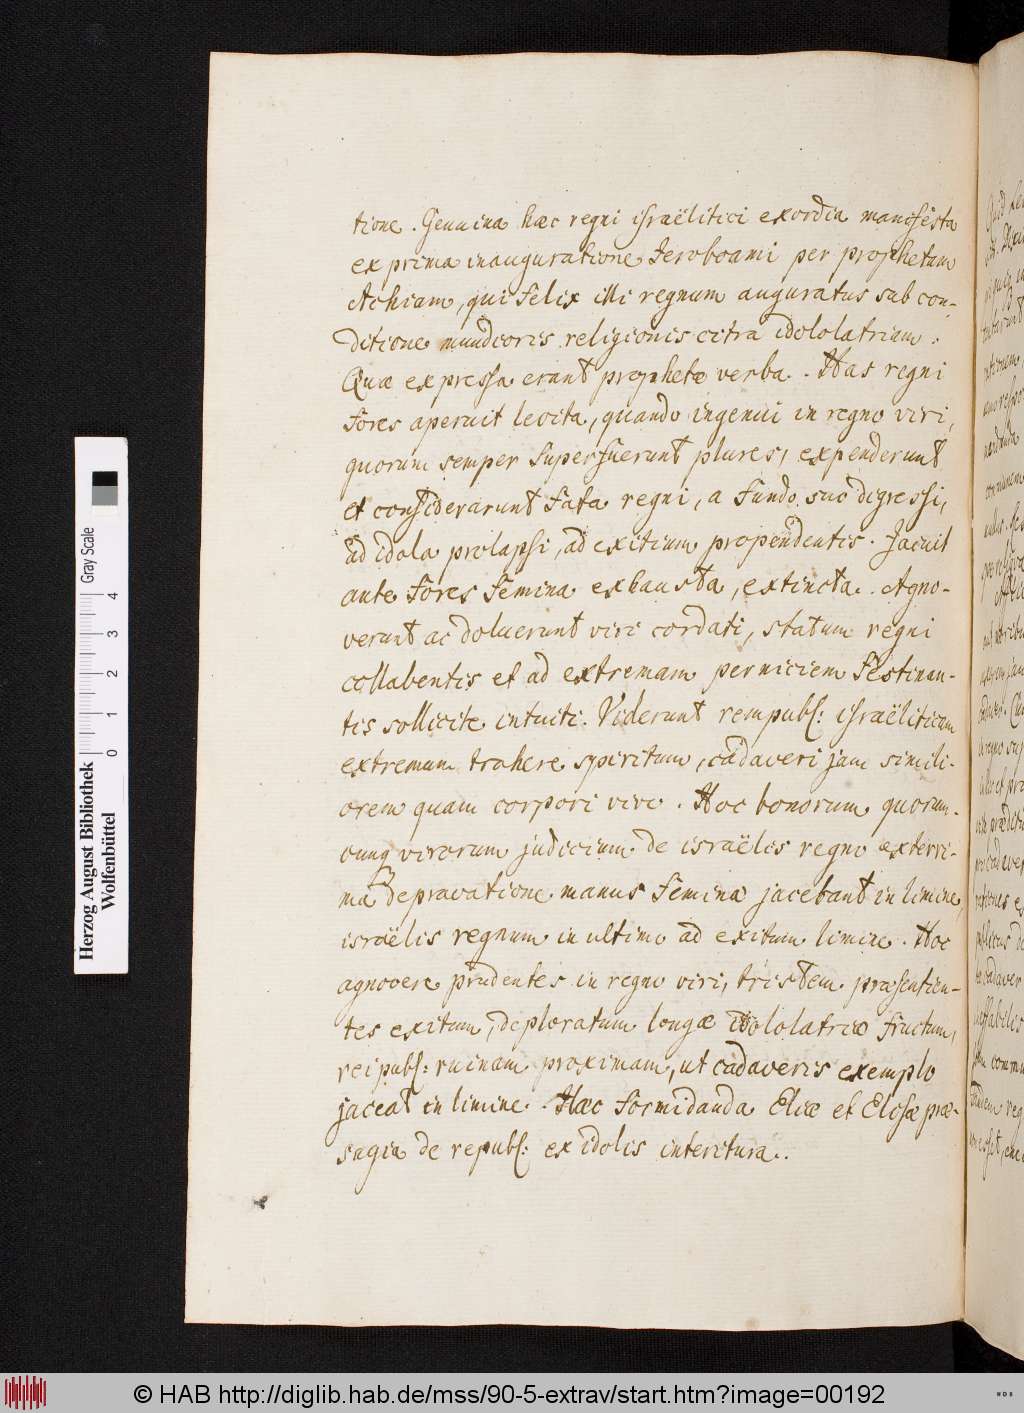 tione. Genuina hæc regni israëlitici exordia manifesta
ex prima inauguratione Jeroboami per prophetam
Achiam, qui felix illi regnum auguratus sub con-
ditione mundioris religionis citra idololatriam.
Quæ expressa erant prophetæ verba. Has regni
fores aperuit levita, quando ingenui in regno viri,
quorum semper superfuerunt plures, expenderunt
et considerarunt fata regni, a fundo suo digressi,
ad idola prolapsi, ad exitium propendentis. Jacuit
ante fores femina exhausta, extincta. Agno-
verunt ac doluerunt viri cordati, statum regni
collabentis et ad extremam perniciem festinan-
tis sollicite intuiti. Viderunt rempubl: israëliticam
extremum trahere spiritum, cadaveri jam simili-
orem quam corpori vivo. Hoc bonorum quorum-
cunq virorum judicium de israëlis regno exterri-
ma depravatione manus feminæ jacebant in limine,
israëlis regnum in ultimo ad exitum limine. Hoc
agnovere prudentes in regno viri, tristem præsentien-
tes exitum, deploratum longæ idololatriæ fructum,
rei publ: ruinam proximam, ut cadaveris exemplo
jaceat in limine. Hæc formidanda Eliæ et Elisæ præ-
sagia de republ: ex idolis interitura.
Herzog August Bibliothek
Wolfenbüttel
0 1 2 3 4 Gray Scale
© HAB http://diglib.hab.de/mss/90-5-extrav/start.htm?image=00192